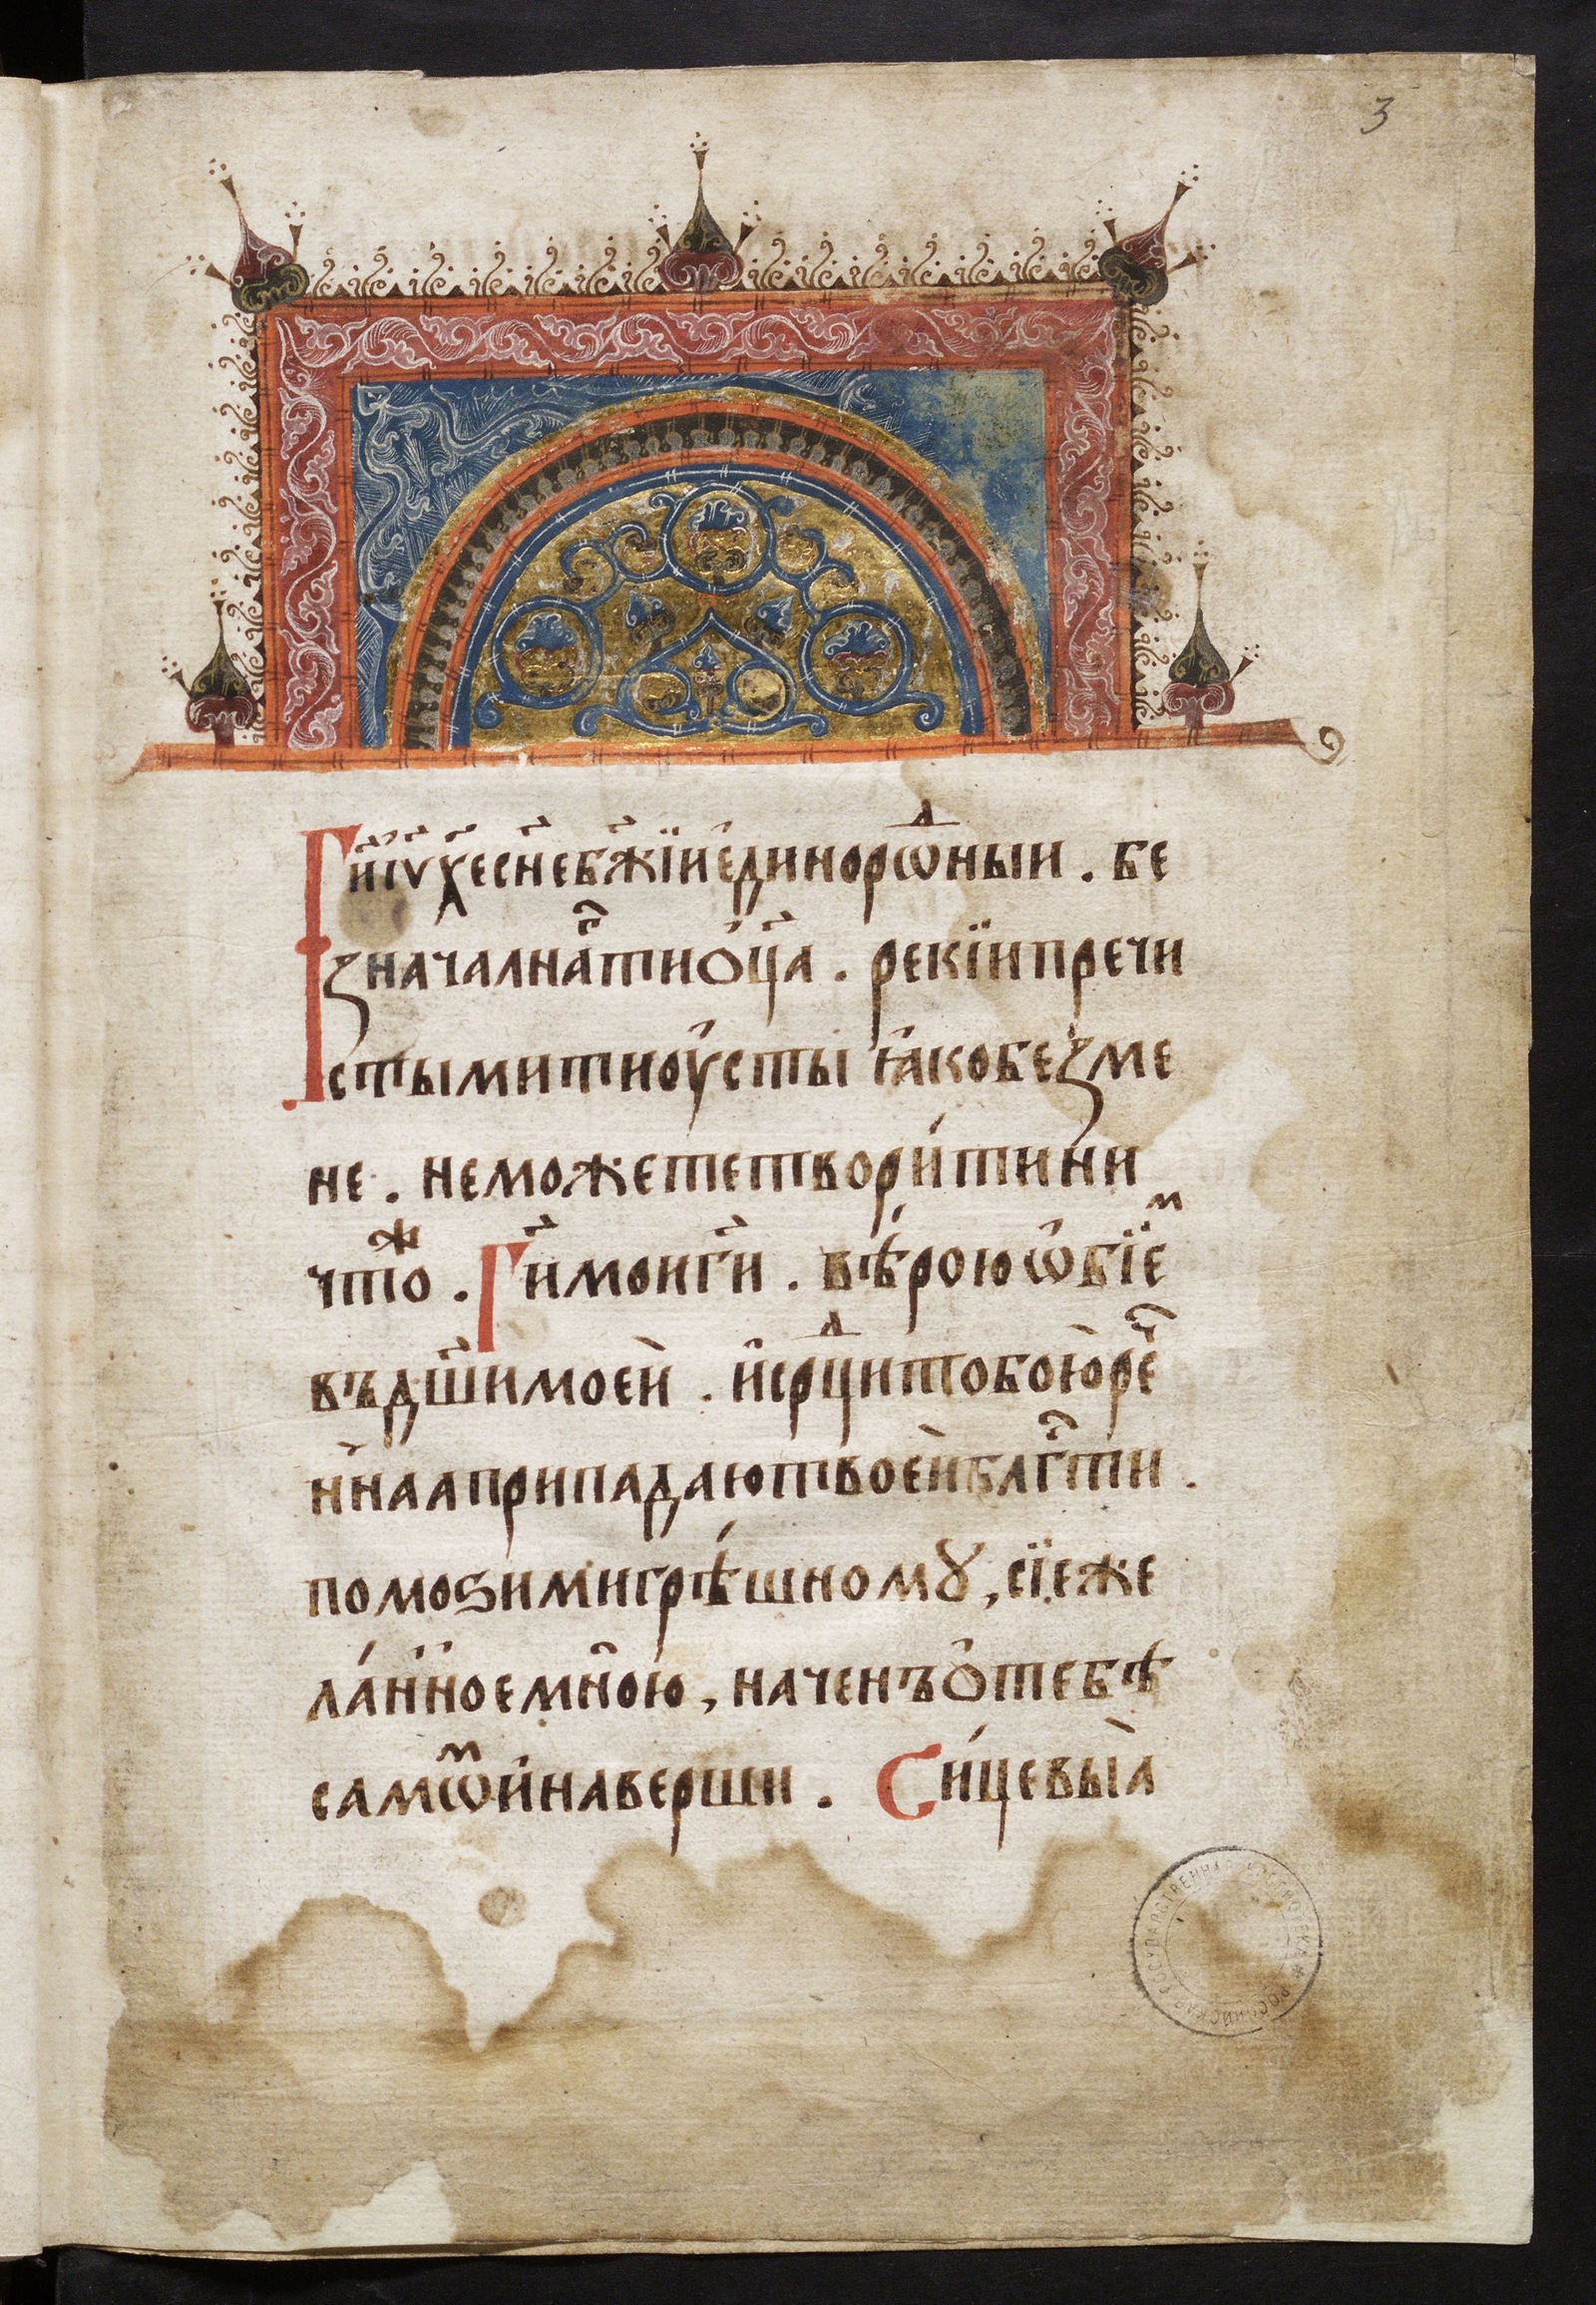 3
Ги҃ іѵ҃ х҃е сн҃е бж҃їи единорѡⷣныи . бе
значалнаⷢ҇ ти ѻц҃а . рекїи пречи
стыми ти оусты ꙗко без ме
не . не можете творити ни
чтоⷤ . Ги҃ мои ги҃ . вѣрою ѡбїеⷨ
въ дш҃и моеи . и срⷣци тобою рⷱ҇е
ннаа припадаю твоеи блгⷭ҇ти .
помоѕи ми грѣшному , сїе же
ланное мн҃ою , наченъ ѻ тебѣ
самѡⷨ и наверши . Сицевыа
РОССИЙСКАЯ ГОСУДАРСТВЕННАЯ БИБЛИОТЕКА *